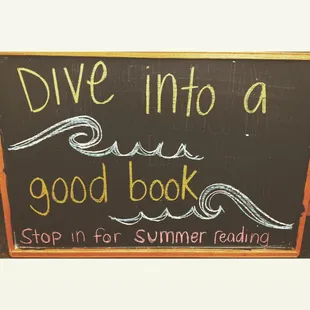 Dive into a
good book
Stop in for Summer reading